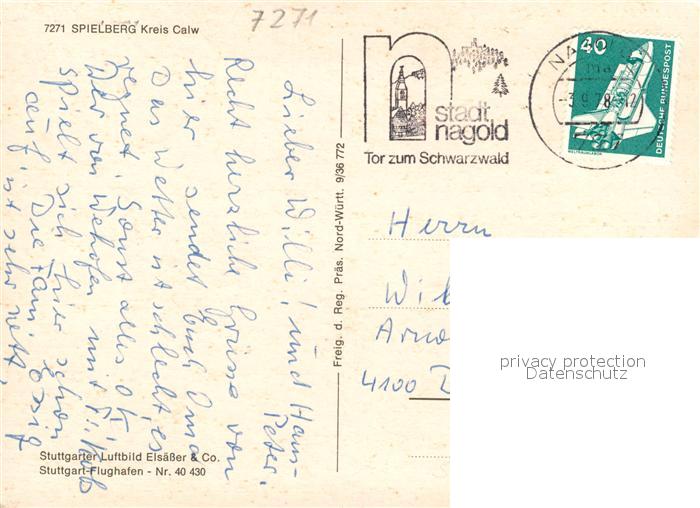 7271
7271 SPIELBERG Kreis Calw
Lieber Willi! und Hans-
Peter.
Recht herzliche Grüsse von
hier sendet Euch Oma
Das Wetter ist schlecht, es
regnet. Sonst alles ok
Der von Wehofen mit Fußball
spielt sich hier schon
auf. Die Fam.
ist sehr nett.
Stuttgarter Luftbild Elsäßer & Co.
Stuttgart-Flughafen - Nr. 40 430
Freig. d. Reg. Präs. Nord-Württ. 9/36 772
n
stadt
nagold
Tor zum Schwarzwald
NA
-3.9.78-12
40
DEUTSCHE BUNDESPOST
WELTRAUMLABOR
Herrn
Wil
Arno
4100 D
privacy protection
Datenschutz